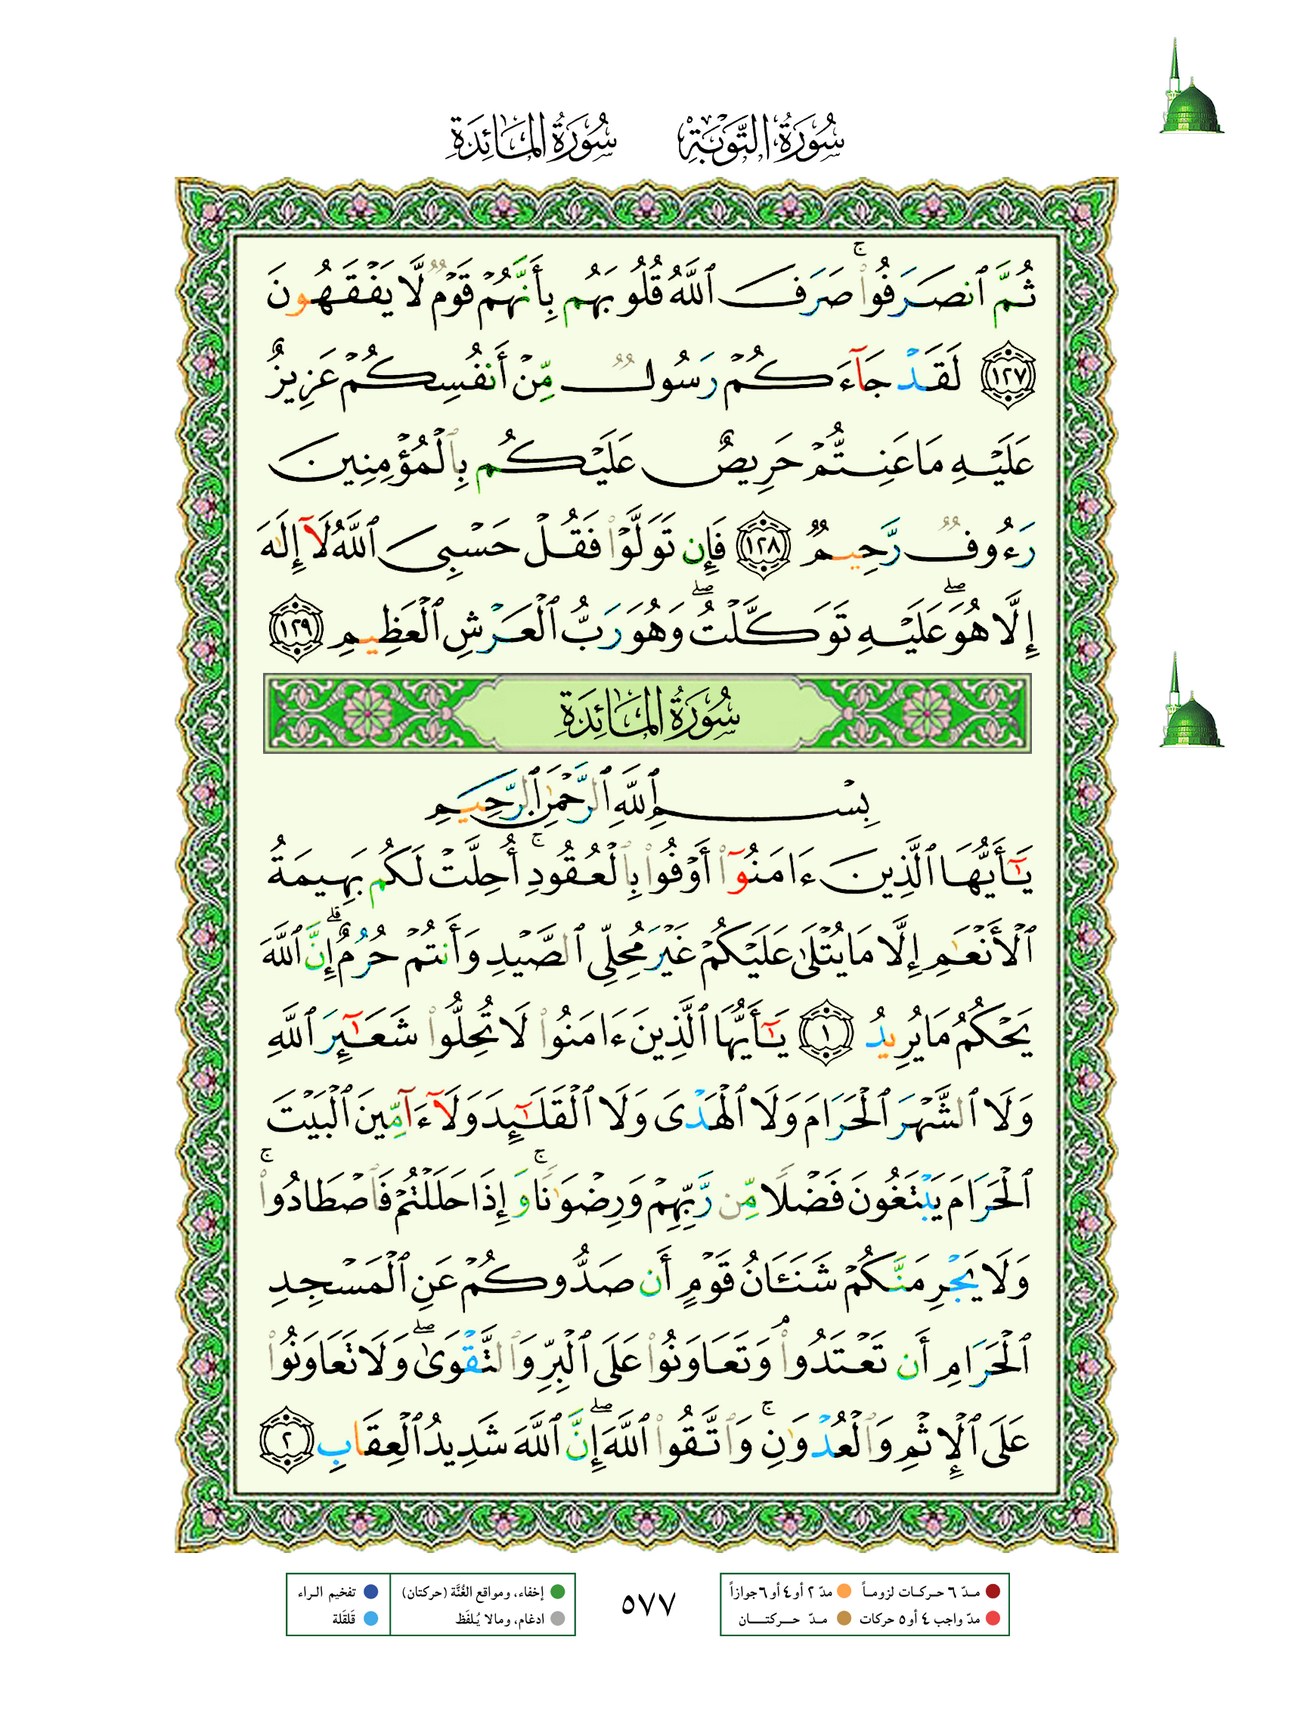 سُورَةُ التَّوْبَةِ سُورَةُ المَائِدَةِ
ثُمَّ ٱنصَرَفُوا۟ ۚ صَرَفَ ٱللَّهُ قُلُوبَهُم بِأَنَّهُمْ قَوْمٌ لَّا يَفْقَهُونَ
١٢٧ لَقَدْ جَآءَكُمْ رَسُولٌ مِّنْ أَنفُسِكُمْ عَزِيزٌ
عَلَيْهِ مَا عَنِتُّمْ حَرِيصٌ عَلَيْكُم بِٱلْمُؤْمِنِينَ
رَءُوفٌ رَّحِيمٌ ١٢٨ فَإِن تَوَلَّوْا۟ فَقُلْ حَسْبِىَ ٱللَّهُ لَآ إِلَٰهَ
إِلَّا هُوَ ۖ عَلَيْهِ تَوَكَّلْتُ ۖ وَهُوَ رَبُّ ٱلْعَرْشِ ٱلْعَظِيمِ ١٢٩
سُورَةُ المَائِدَةِ
بِسْمِ ٱللَّهِ ٱلرَّحْمَٰنِ ٱلرَّحِيمِ
يَٰٓأَيُّهَا ٱلَّذِينَ ءَامَنُوٓا۟ أَوْفُوا۟ بِٱلْعُقُودِ ۚ أُحِلَّتْ لَكُم بَهِيمَةُ
ٱلْأَنْعَٰمِ إِلَّا مَا يُتْلَىٰ عَلَيْكُمْ غَيْرَ مُحِلِّى ٱلصَّيْدِ وَأَنتُمْ حُرُمٌ ۗ إِنَّ ٱللَّهَ
يَحْكُمُ مَا يُرِيدُ ١ يَٰٓأَيُّهَا ٱلَّذِينَ ءَامَنُوا۟ لَا تُحِلُّوا۟ شَعَٰٓئِرَ ٱللَّهِ
وَلَا ٱلشَّهْرَ ٱلْحَرَامَ وَلَا ٱلْهَدْىَ وَلَا ٱلْقَلَٰٓئِدَ وَلَآ ءَآمِّينَ ٱلْبَيْتَ
ٱلْحَرَامَ يَبْتَغُونَ فَضْلًا مِّن رَّبِّهِمْ وَرِضْوَٰنًا ۚ وَإِذَا حَلَلْتُمْ فَٱصْطَادُوا۟ ۚ
وَلَا يَجْرِمَنَّكُمْ شَنَـَٔانُ قَوْمٍ أَن صَدُّوكُمْ عَنِ ٱلْمَسْجِدِ
ٱلْحَرَامِ أَن تَعْتَدُوا۟ ۘ وَتَعَاوَنُوا۟ عَلَى ٱلْبِرِّ وَٱلتَّقْوَىٰ ۖ وَلَا تَعَاوَنُوا۟
عَلَى ٱلْإِثْمِ وَٱلْعُدْوَٰنِ ۚ وَٱتَّقُوا۟ ٱللَّهَ ۖ إِنَّ ٱللَّهَ شَدِيدُ ٱلْعِقَابِ ٢
مـدّ ٦ حـركـات لزومـاً مدّ ٢ أو ٤ أو ٦ جوازاً
مدّ واجب ٤ أو ٥ حركات مـدّ حــركتــــان
٥٧٧
إخفاء، ومواقع الغُنَّة (حركتان) تفخيم الراء
ادغام، ومالا يُلفَظ قَلقَلة